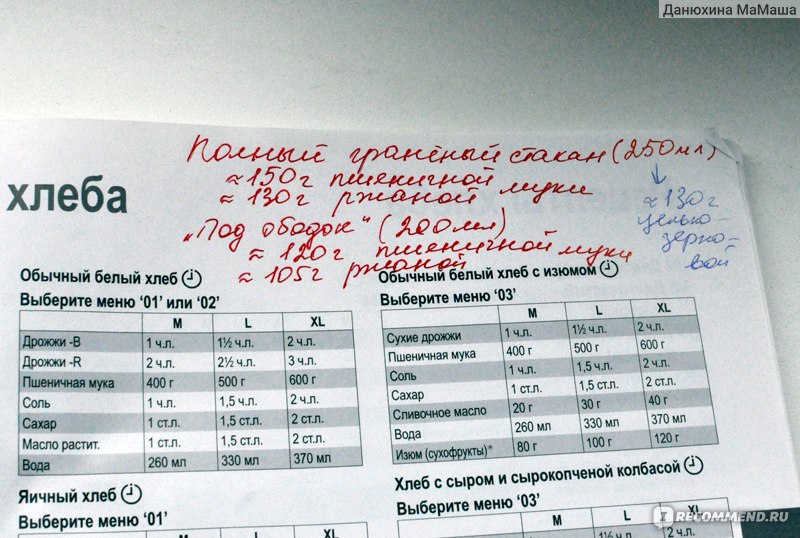 Данюхина МаМаша
Полный гранёный стакан (250мл)
≈150г пшеничной муки
≈130г ржаной
≈130г
цельно-
зерно-
вой
„Под ободок“ (200мл)
≈120г пшеничной муки
≈105г ржаной
хлеба
Обычный белый хлеб
Выберите меню ‘01’ или ‘02’
M L XL
Дрожжи -В 1 ч.л. 1½ ч.л. 2 ч.л.
Дрожжи -R 2 ч.л. 2½ ч.л. 3 ч.л.
Пшеничная мука 400 г 500 г 600 г
Соль 1 ч.л. 1,5 ч.л. 2 ч.л.
Сахар 1 ст.л. 1,5 ст.л. 2 ст.л.
Масло растит. 1 ст.л. 1,5 ст.л. 2 ст.л.
Вода 260 мл 330 мл 370 мл
Яичный хлеб
Выберите меню ‘01’
Обычный белый хлеб с изюмом
Выберите меню ‘03’
M L XL
Сухие дрожжи 1 ч.л. 1½ ч.л. 2 ч.л.
Пшеничная мука 400 г 500 г 600 г
Соль 1 ч.л. 1,5 ч.л. 2 ч.л.
Сахар 1 ст.л. 1,5 ст.л. 2 ст.л.
Сливочное масло 20 г 30 г 40 г
Вода 260 мл 330 мл 370 мл
Изюм (сухофрукты)* 80 г 100 г 120 г
Хлеб с сыром и сырокопченой колбасой
Выберите меню ‘03’
M L XL
1 ч.л. 1½ ч.л. 2 ч.л.
IRECOMMEND.RU